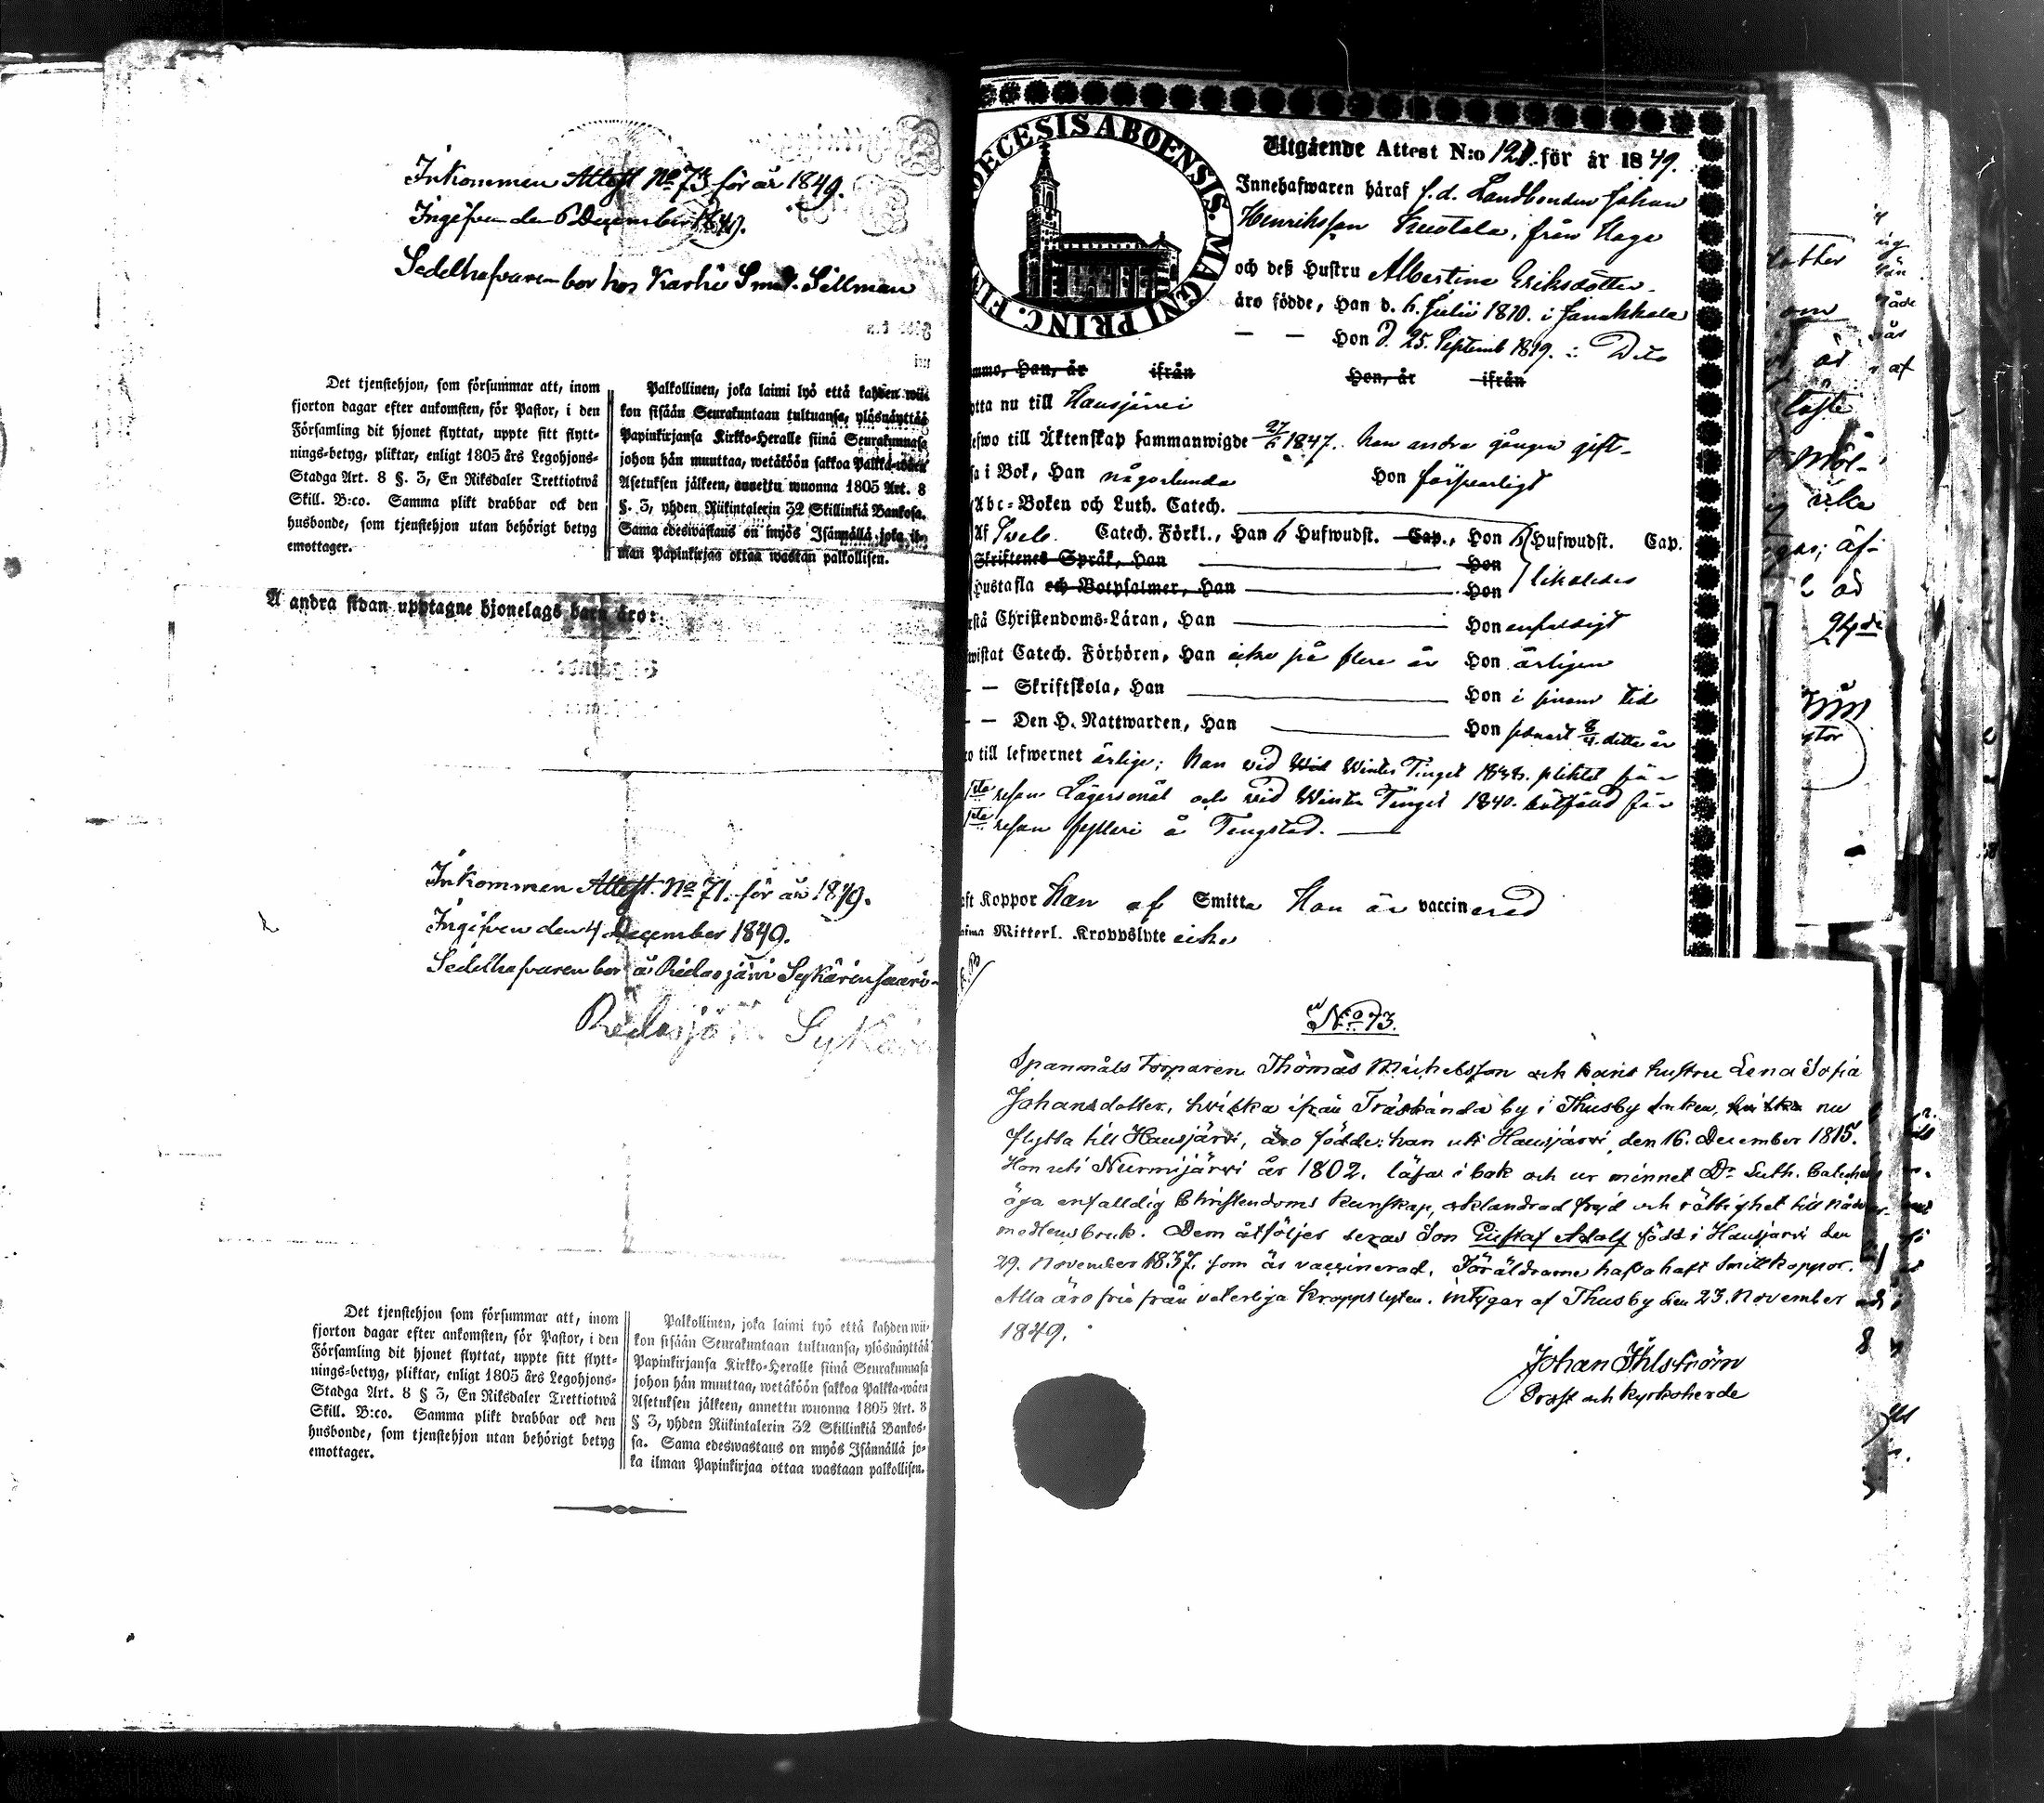 Inkommen Attest No 73 för år 1849.
Ingifven den 6 December 1849.
Sedelhafvaren bor hos Karhi Smed. Sillman
Det tjenstehjon, som försummar att, inom
fjorton dagar efter ankomsten, för Pastor, i den
Församling dit hjonet flyttat, uppte sitt flytt-
nings-betyg, pliktar, enligt 1805 års Legohjons-
Stadga Art. 8 §. 3, En Riksdaler Trettiotwå
Skill. B:co. Samma plikt drabbar ock den
husbonde, som tjenstehjon utan behörigt betyg
emottager.
Palkollinen, joka laimi lyö että kahden wii-
kon sisään Seurakuntaan tultuansa, ylösnäyttää
Papinkirjansa Kirkko-Heralle siinä Seurakunnasa
johon hän muuttaa, wetäköön sakkoa Palkka-wäen
Asetuksen jälkeen, annettu wuonna 1805 Art. 8
§. 3, yhden Riikintalerin 32 Skillinkiä Bankosa.
Sama edeswastaus on myös Isännällä joka il-
man Papinkirjaa ottaa wastan palkollisen.
Å andra sidan upptagne hjonelags barn äro:
Inkommen Attest. No 71. för år 1849.
Ingifven den 4 December 1849.
Sedelhafvaren bor å Ridasjärvi Sykärinsaari
Ridasjärvi
Det tjenstehjon som försummar att, inom
fjorton dagar efter ankomsten, för Pastor, i den
Församling dit hjonet flyttat, uppte sitt flytt-
nings-betyg, pliktar, enligt 1805 års Legohjons-
Stadga Art. 8 § 3, En Riksdaler Trettiotwå
Skill. B:co. Samma plikt drabbar ock den
husbonde, som tjenstehjon utan behörigt betyg
emottager.
Palkollinen, joka laimi lyö että kahden wii-
kon sisään Seurakuntaan tultuansa, ylösnäyttää
Papinkirjansa Kirkko-Heralle siinä Seurakunnasa
johon hän muuttaa, wetäköön sakkoa Palkka-wäen
Asetuksen jälkeen, annettu wuonna 1805 Art. 8
§ 3, yhden Riikintalerin 32 Skillinkiä Bankos-
sa. Sama edeswastaus on myös Isännällä jo-
ka ilman Papinkirjaa ottaa wastaan palkollisen.
DECESIS ABOENSIS. MAGNI PRINC. FIN
Utgående Attest N:o 121. för år 1849.
Innehafwaren häraf f.d. Landbonden Johan
Henriksson från Haga
och deß Hustru Albertina Eriksdotter.
äro födde, Han d. 6. Julii 1810. i Janakkala
— — Hon d. 25. Septemb 1819. i Dito
Han, år ifrån Hon, år ifrån
nu till Hausjärvi
till Äktenskap sammanwigde 27/6 1847. han andra gången gift
i Bok, Han någorlunda Hon försvarligt
Abc-Boken och Luth. Catech.
Af Svebe. Catech. Förkl., Han 6 Hufwudst. Cap., Hon 6 Hufwudst. Cap.
Skriftenes Språk, Han Hon
Hustafla och Botpsalmer, Han Hon likaledes
Christendoms-Läran, Han Hon enfaldigt
Catech. Förhören, Han icke på flere år Hon årligen
— Skriftskola, Han Hon i sinom tid
— Den H. Nattwarden, Han Hon senast detta år
till lefwernet ärlige; han vid Winter Tinget pliktat för
resan Lägersmål och vid Winter Tinget 1840. bötfälld för
resan fylleri å Tingstad.
Koppor Han af Smitta Hon är vaccinerad
Mitterl. Kroppslyte icke
No 73.
Spanmåls torparen Thomas Michelsson och hans hustru Lena Sofia
Johansdotter, hvilka ifrån Träskända by i Thusby Socken, hvilka nu
flytta till Hausjärvi, äro födde: han uti Hausjärvi den 16. December 1815.
Hon uti Nurmijärvi år 1802. läsa i bok och ur minnet Dr Luth. Catech
äga enfalldig Christendoms kunskap, oklandrad frejd och rättighet till nåde
medlens bruk. Dem åtföljer deras Son Gustaf Adolf född i Hausjärvi den
29. November 1837. som är vaccinerad. Föräldrarne hafva haft Smittkoppor.
Alla äro fria från veterliga kroppslyten. intygar af Thusby den 23. November
1849.
Johan Ahlström
Prost och kyrkoherde